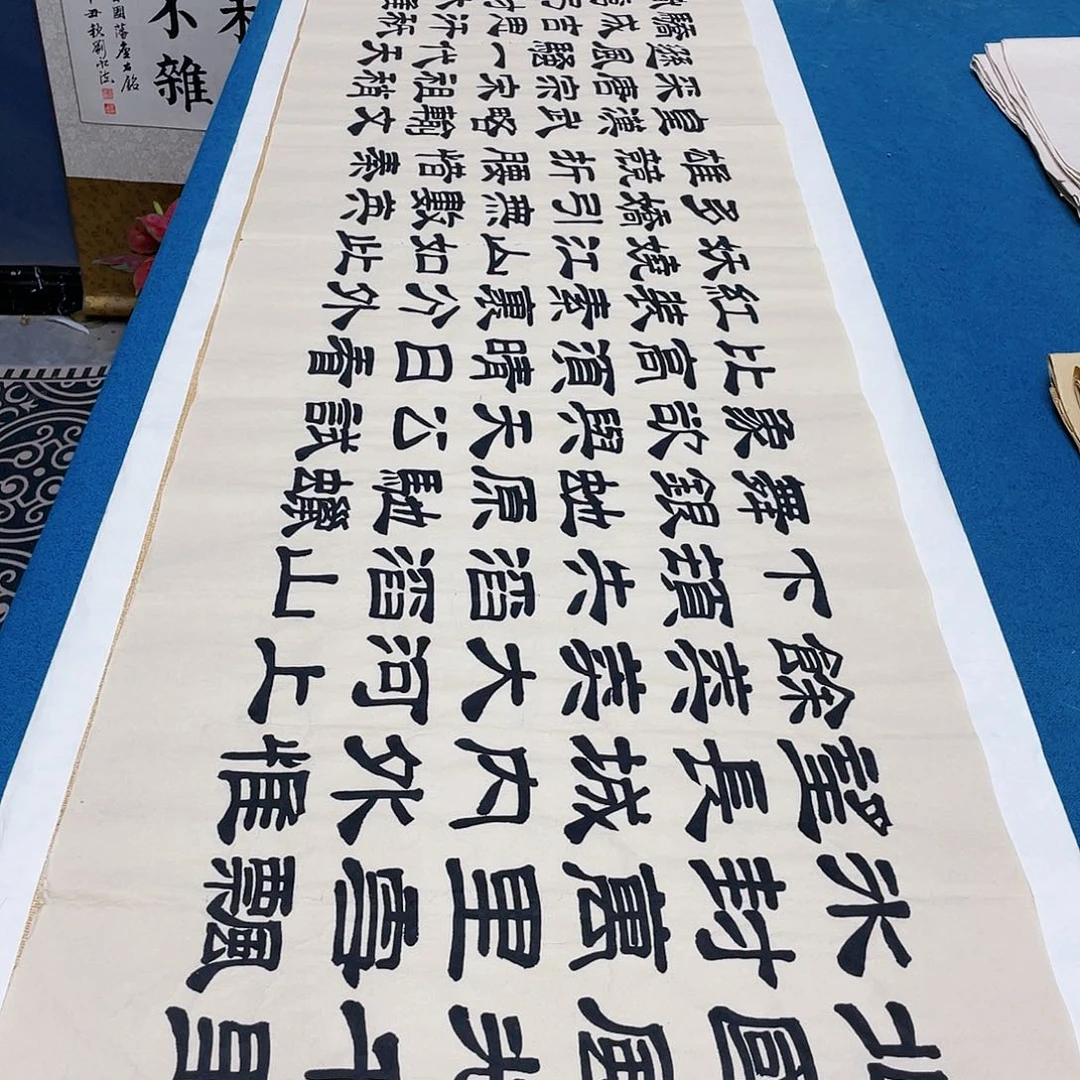 北國風光千里
冰封萬里雪飄
望長城內外惟
餘莽莽大河上
下頓失滔滔山
舞銀蛇原馳蠟
象欲與天公試
比高須晴日看
紅裝素裹分外
妖嬈江山如此
多嬌引無數英
雄競折腰惜秦
皇漢武略輸文
采唐宗宋祖稍
遜風騷一代天
驕成吉思汗祇
不雜
國藩座右銘
丑秋劉